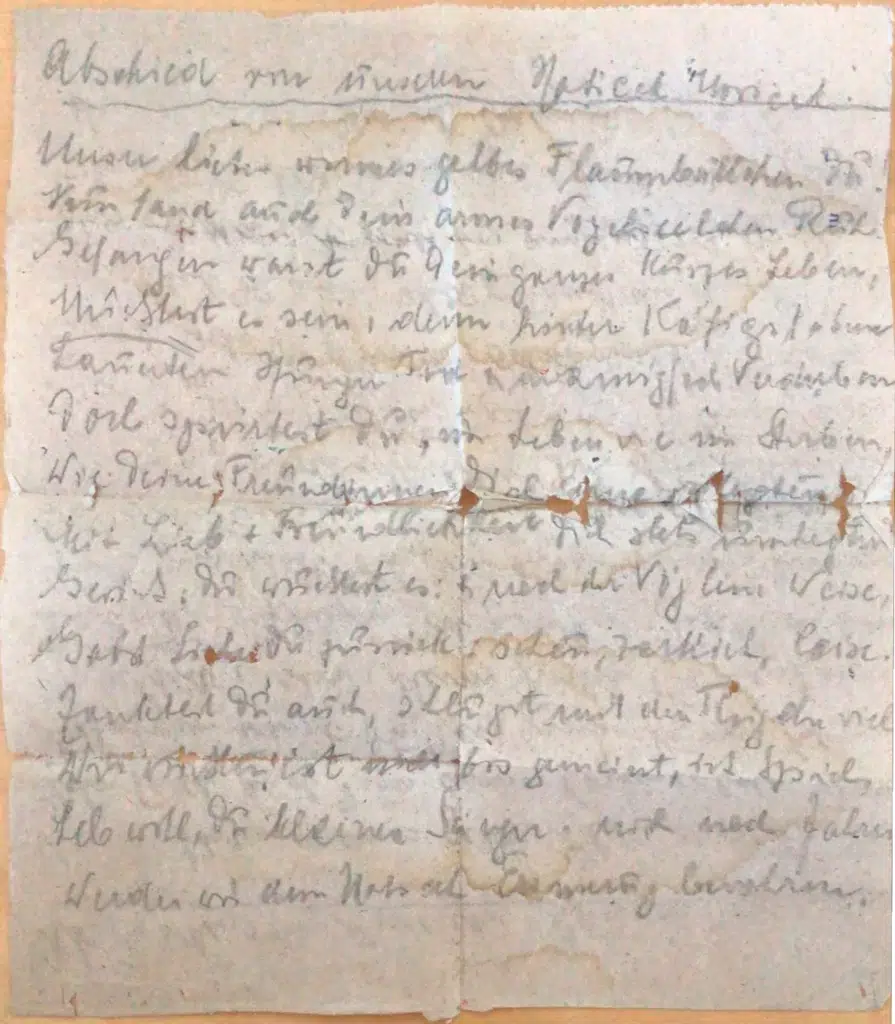 Abschied von unserem Moricel.
Unser liebes warmes gelbes Flaumbällchen Du.
Nun fand auch Dein armes Vogelseelchen Ruh.
Gefangen warst Du Dein ganzes kurzes Leben,
Mußtest es sein, denn hinter Käfigstäben
Lauerten Hunger Tod u.
Doch spürtest Du, im Leben wie im Sterben,
Wie Deine Freundinnen Dich
Mit Lieb + Freundlichkeit Dich stets
Gewiß, Du wußtest es: u nach der Vöglein Weise,
Gabst Liebe Du zurück: scheu, zärtlich, leise.
Zanktest Du auch, schlugst mit den Flügeln viel
Wir wußten, ist bös gemeint, ist Spiel,
Leb wohl, Du kleiner Sänger. noch nach Jahren
Werden wir dem Erinnerung bewahren.